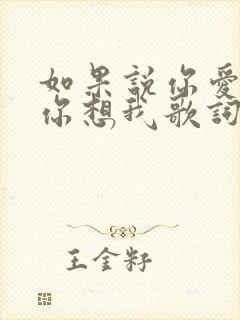 如果说你爱
你想我歌詞
王金籽